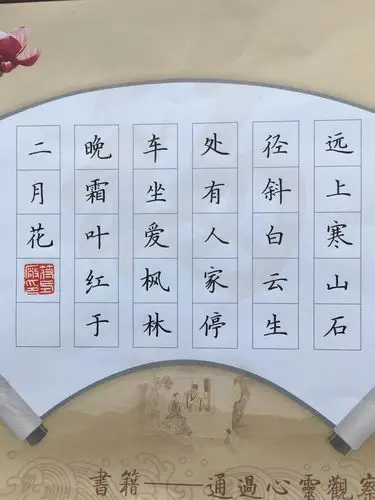 远上寒山石
径斜白云生
处有人家停
车坐爱枫林
晚霜叶红于
二月花
書籍——通過心靈觀察